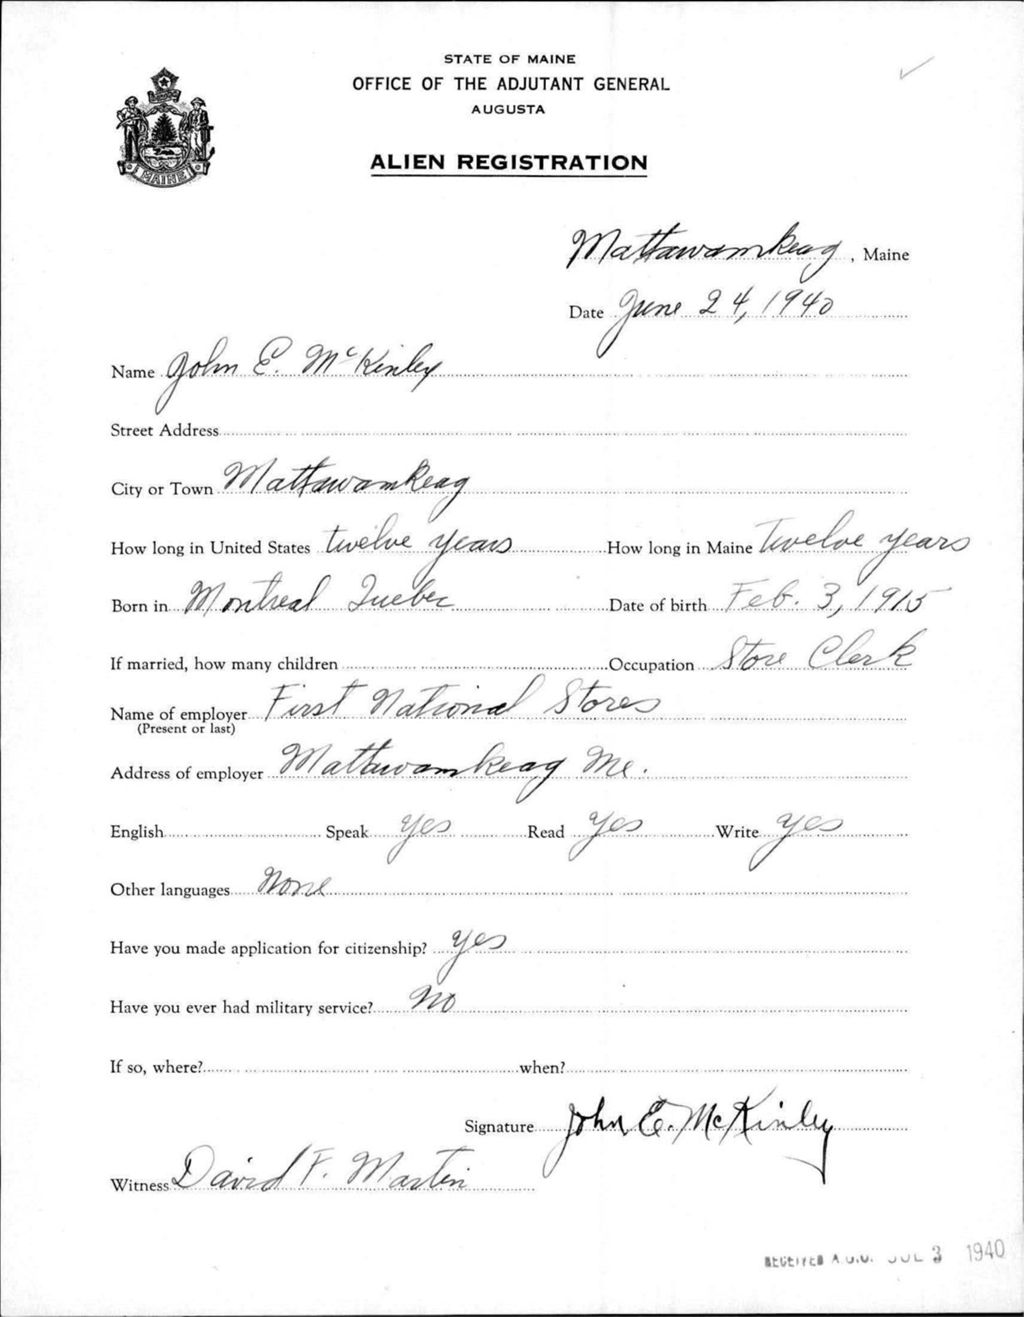 STATE OF MAINE
OFFICE OF THE ADJUTANT GENERAL
AUGUSTA
MAINE
ALIEN REGISTRATION
Mattawamkeag, Maine
Date June 24, 1940
Name John E. McKinley
Street Address
City or Town Mattawamkeag
How long in United States twelve years How long in Maine Twelve years
Born in Montreal Quebec Date of birth Feb. 3, 1915
If married, how many children Occupation Store Clerk
Name of employer First National Stores
(Present or last)
Address of employer Mattawamkeag Me.
English Speak yes Read yes Write yes
Other languages None
Have you made application for citizenship? yes
Have you ever had military service? No
If so, where? when?
Signature John E. McKinley
Witness David F. Martin
RECEIVED A.G.O. JUL 3 1940